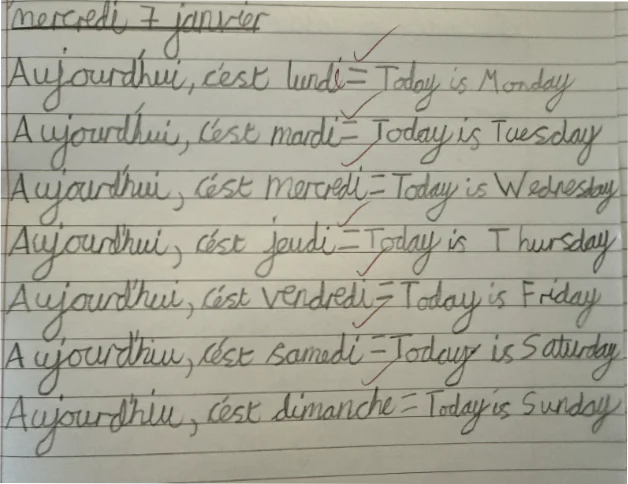 mercredi 7 janvier
Aujourd'hui, c'est lundi = Today is Monday
Aujourd'hui, c'est mardi = Today is Tuesday
Aujourd'hui, c'est mercredi = Today is Wednesday
Aujourd'hui, c'est jeudi = Today is Thursday
Aujourd'hui, c'est vendredi = Today is Friday
Aujourd'hiu, c'est samedi = Today is Saturday
Aujourd'hiu, c'est dimanche = Today is Sunday